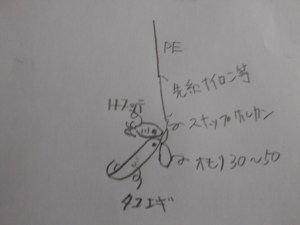 PE
先糸ナイロン等
スナップサルカン
オモリ30〜50
タコエギ